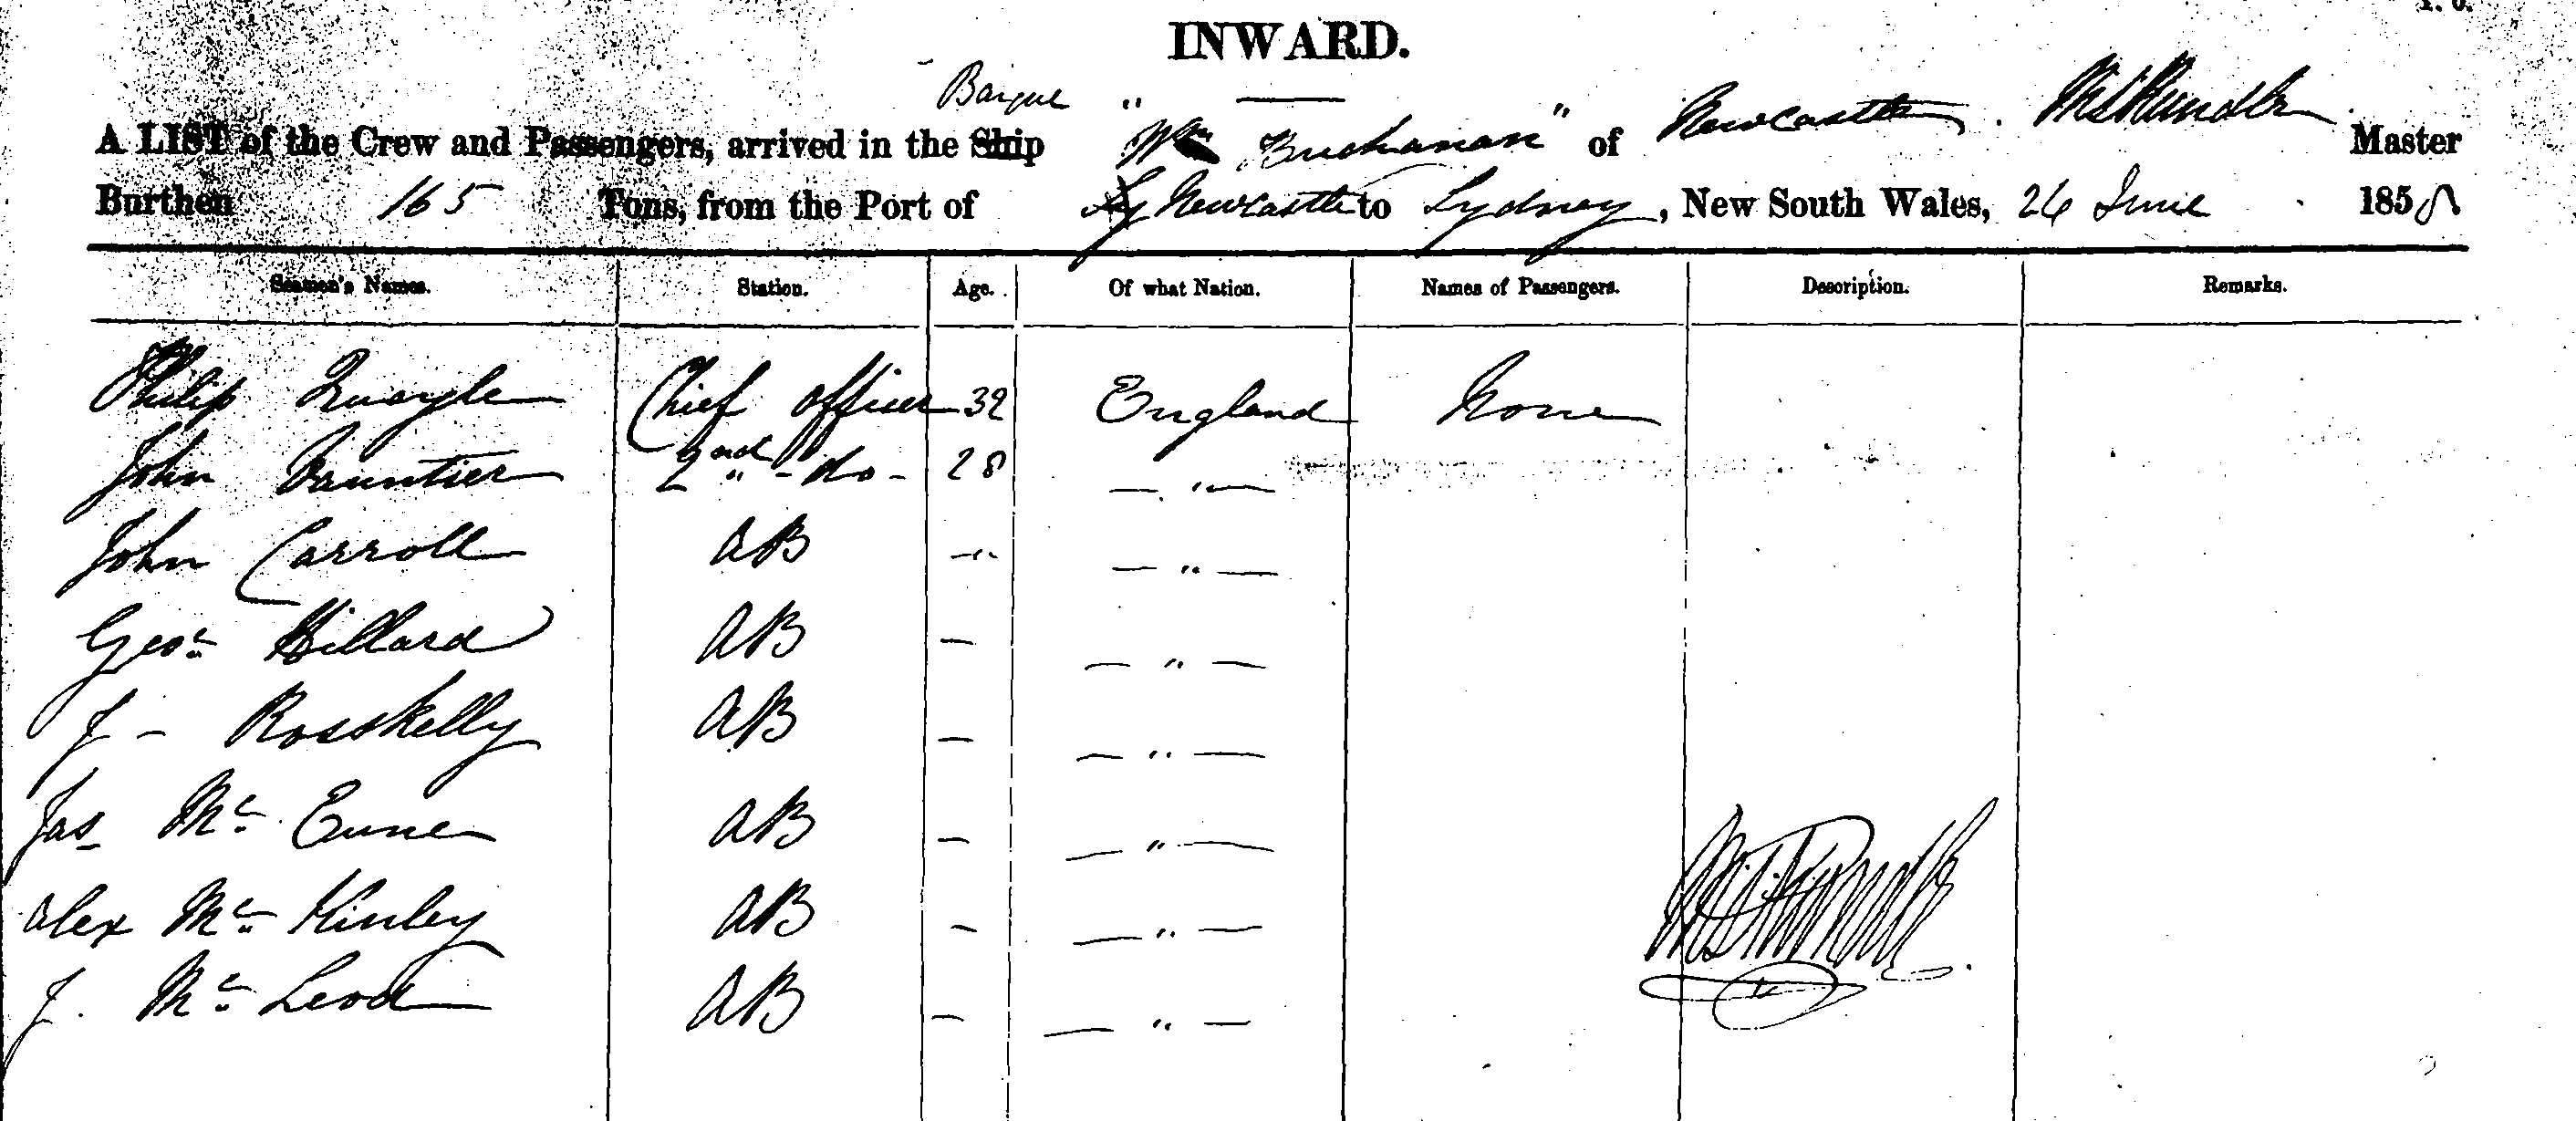 INWARD.
Barque " "
A LIST of the Crew and Passengers, arrived in the Ship Wm Buchanan of Newcastle. Master
Burthen 165 Tons, from the Port of Newcastle to Sydney, New South Wales, 26 June 1858
Seamen's Names. Station. Age. Of what Nation. Names of Passengers. Description. Remarks.
Philip Quayle Chief officer 32 England None
John 2nd - do - 28 — " —
John Carroll AB - " - — " —
Geo. Hillard AB — — " —
J - Rosskelly AB — — " —
Jas Mc. AB — — " —
Alex Mc. Kinley AB — — " —
J. Mc. Leod AB — — " —